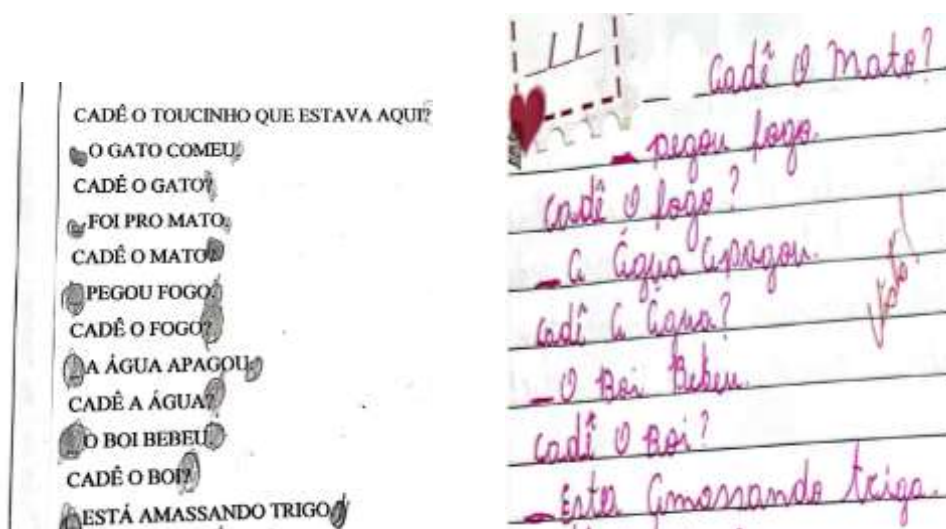 CADÊ O TOUCINHO QUE ESTAVA AQUI?
O GATO COMEU.
CADÊ O GATO?
FOI PRO MATO.
CADÊ O MATO?
PEGOU FOGO.
CADÊ O FOGO?
A ÁGUA APAGOU.
CADÊ A ÁGUA?
O BOI BEBEU.
CADÊ O BOI?
ESTÁ AMASSANDO TRIGO.
Cadê O Mato?
– pegou fogo.
Cadê O fogo?
– A Água Apagou.
Cadê A Água?
– O Boi Bebeu.
Cadê O Boi?
– Esta Amassando triga.
Visto!